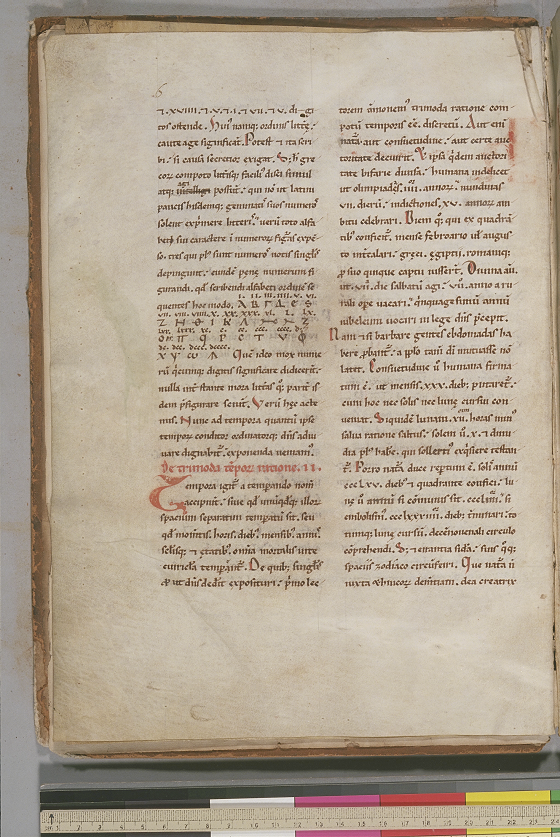 ⁊ xviiii. ⁊ v. ⁊ i. ⁊ vii. ⁊ v. digi
tos ostende. Hui' namq; ordinis litt̄ę.
caute age significat. Potest ⁊ ita scri
bi. si causa secretior exigat. S; h̄ gre
cor̄ compoto litt̄isq; faciliꝰ disci simul
atq; agi possit. qui nō ut latini
paucis hisdemq; geminatis suos numeros
solent exp̄mere litteris. uerū toto alfa
beti sui caractere ī numeror̄ figuras expē
so. tres qui plꝰ sunt numerꝰ notis singlꝭ
depingunt. eundē penę numerum fi
gurandi. qd̄ scribendi alfabeti ordinē se
quentes hoc modo. i. ii. iii. iiii. v. vi.
Α Β Γ Δ Ε Ϛ
vii. viii. viiii. x. xx. xxx. xl. l. lx.
Ζ Η Θ Ι Κ Λ Μ Ν Ξ
lxx. lxxx. xc. c. cc. ccc. cccc. d.
Ο Π Ϙ Ρ C Τ Υ Φ
dc. dcc. dccc. dcccc.
Χ Ψ ω Λ Que ideo mox nume
rū q̄cumq; digitis significare didicerīt.
nulla īt̄stante mora litt̄as q̄q; parit̄ is
dem p̄figurare sciunt. Verū hęc acte
nus. Nunc ad tempora quantū ipse
tempor̄ conditor ordinatorq; dn̄s adiu
uare dignabit̄. exponenda ueniam.
De trimoda tēpor̄ ratione. ii.
Tempora igit̄ a temperando nom̄
accipiunt. siue qd̄ unūqdq; illor̄
spacium separatim temperatū sit. seu
qd̄ momtis. horis. dieb; mensibꝰ. annis.
sclisq; ⁊ ętatibꝰ. omīa mortalis uite
curricla temperent̄. De quib; singlꝭ
ꝓut dn̄s dedit exposituri. p̄mo lec
torem ammonemꝰ trimoda ratione com
potū temporis cē. discretū. Aut enī
natā. aut consuetudine. aut certe auc
toritate decurrit. Et ipsa q̄dem auctori
tate bifarie diuisa. humana uidelicet
ut olimpiades. iiii. annor̄. nundinas
vii. dierū. indictiones. xv. annor̄ am
bitu celebrari. Biem q; qui ex quadrā
tibꝰ conficit̄. mense febroario ut̄ augus
to int̄calari. greci. egiptii. romaniq;
ꝓ suo quique captu iusserīt. Diuina aūt.
ut. vii. die sabbati agi. vii. anno a ru
rali ope uacari. q̄nquagesimū annū
iubeleum uocari in lege dn̄s p̄cepit.
Nam ⁊ si barbare gentes ebdomadas ha
bere ꝓbant̄. a ꝓlo tam̄ dī mutuasse nō
latet. Consuetudine ū humana firma
tum ē. ut mensis. xxx. dieb; putaret̄.
cum hoc nec solis nec lunę cursui con
ueniat. Siquidē lunam. xii. horas minꝰ
salua ratione saltus. solem ū. x. ⁊ dimi
dia plꝰ habē. qui sollertiꝰ exq̄siere testan
t̄. Porro natā duce reptum ē. solis annū
ccc lxv. dieb; ⁊ quadrante confici. lu
nę ū annū si cōmunis sit. cccliiii. si
embolismꝰ. ccclxxxiiii. dieb; t̄minari. to
tumq; lunę cursū. decēnouenali circulo
cōprehendi. S; ⁊ errantia sidā. suis q̄q;
spaciis zodiaco circūferri. Que natā ū
iuxta ethnicor̄ demtiam. dea creatrix